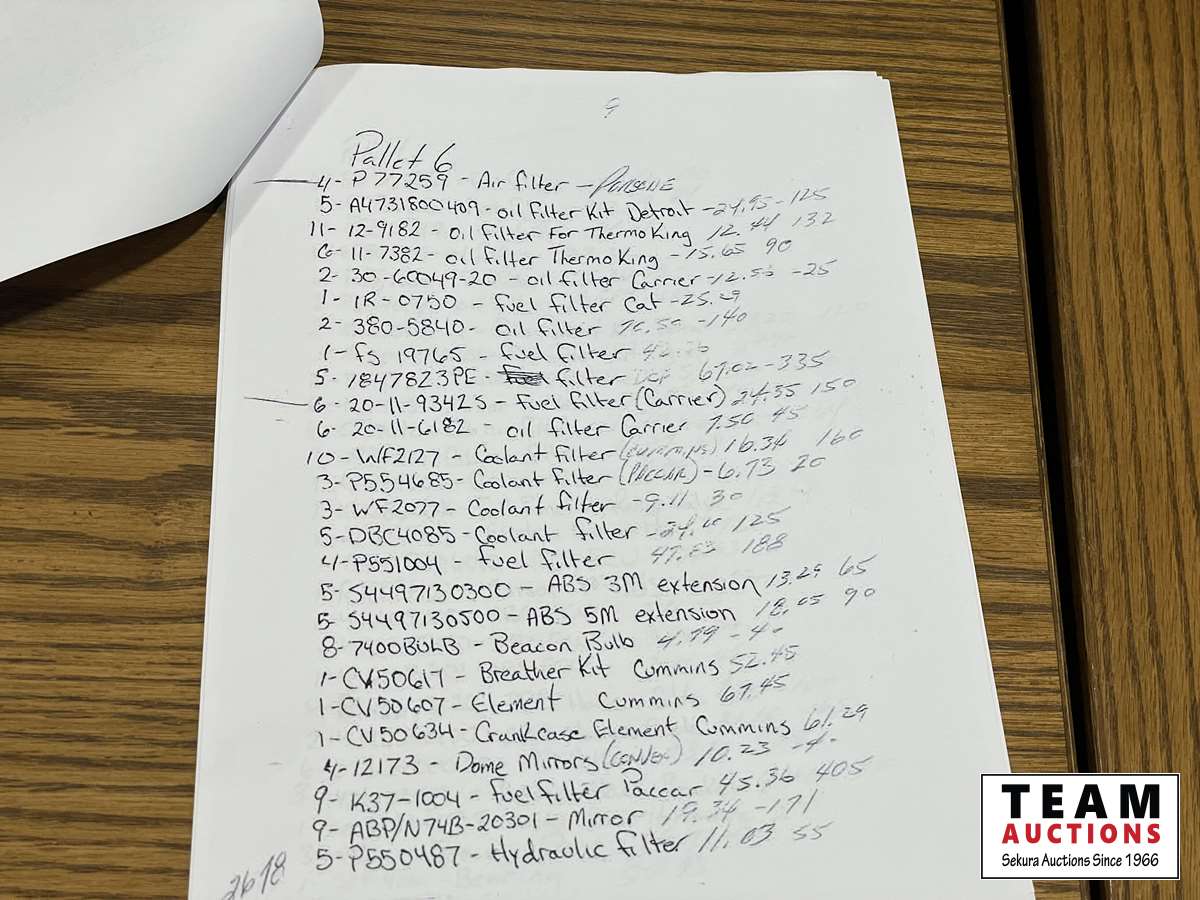 9
Pallet 6
4- P77259 - Air filter -
5- A4731800409 - oil filter Kit Detroit - 24.95 - 125
11- 12-9182 - oil filter For Thermo King 12.44 132
6- 11-7382 - oil filter Thermo King - 15.65 90
2- 30-60049-20 - oil filter Carrier - -25
1- 1R-0750 - fuel filter Cat -
2- 380-5840 - oil filter -140
1- fs 19765 - fuel filter
5- 1847823PE - filter 67.02 - 335
6- 20-11-9342S - fuel filter (Carrier) 24.55 150
6- 20-11-6182 - oil filter Carrier 7.50 45
10- WF2127 - Coolant filter (cummins) 16.34 160
3- P554685 - Coolant filter (PACCAR) - 6.73 20
3- WF2077 - Coolant filter - 9.11 30
5- DBC4085 - Coolant filter - 125
4- P551004 - fuel filter 47.83 188
5- S4497130300 - ABS 3M extension 13.29 65
5- S4497130500 - ABS 5M extension 18.05 90
8- 7400BULB - Beacon Bulb 4.99 - 40
1- CV50617 - Breather Kit Cummins 52.45
1- CV50607 - Element Cummins 67.45
1- CV50634 - Crankcase Element Cummins 61.29
4- 12173 - Dome Mirrors (convex) 10.23 -4-
9- K37-1004 - fuel filter Paccar 45.36 405
9- ABP/N74B-20301 - Mirror 19.34 - 171
5- P550487 - Hydraulic filter 11.03 55
2618
TEAM
AUCTIONS
Sekura Auctions Since 1966